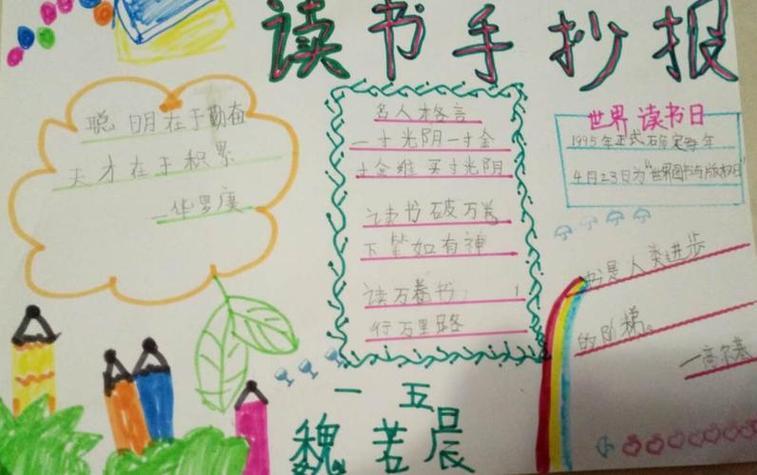 读书手抄报
聪明在于勤奋
天才在于积累
一华罗庚
名人格言
一寸光阴一寸金
寸金难买寸光阴
读书破万卷
下笔如有神
读万卷书,
行万里路
世界读书日
1995年正式确定每年
4月23日为"世界图书与版权日"
书是人类进步
的阶梯。
一高尔基
一五
魏若晨